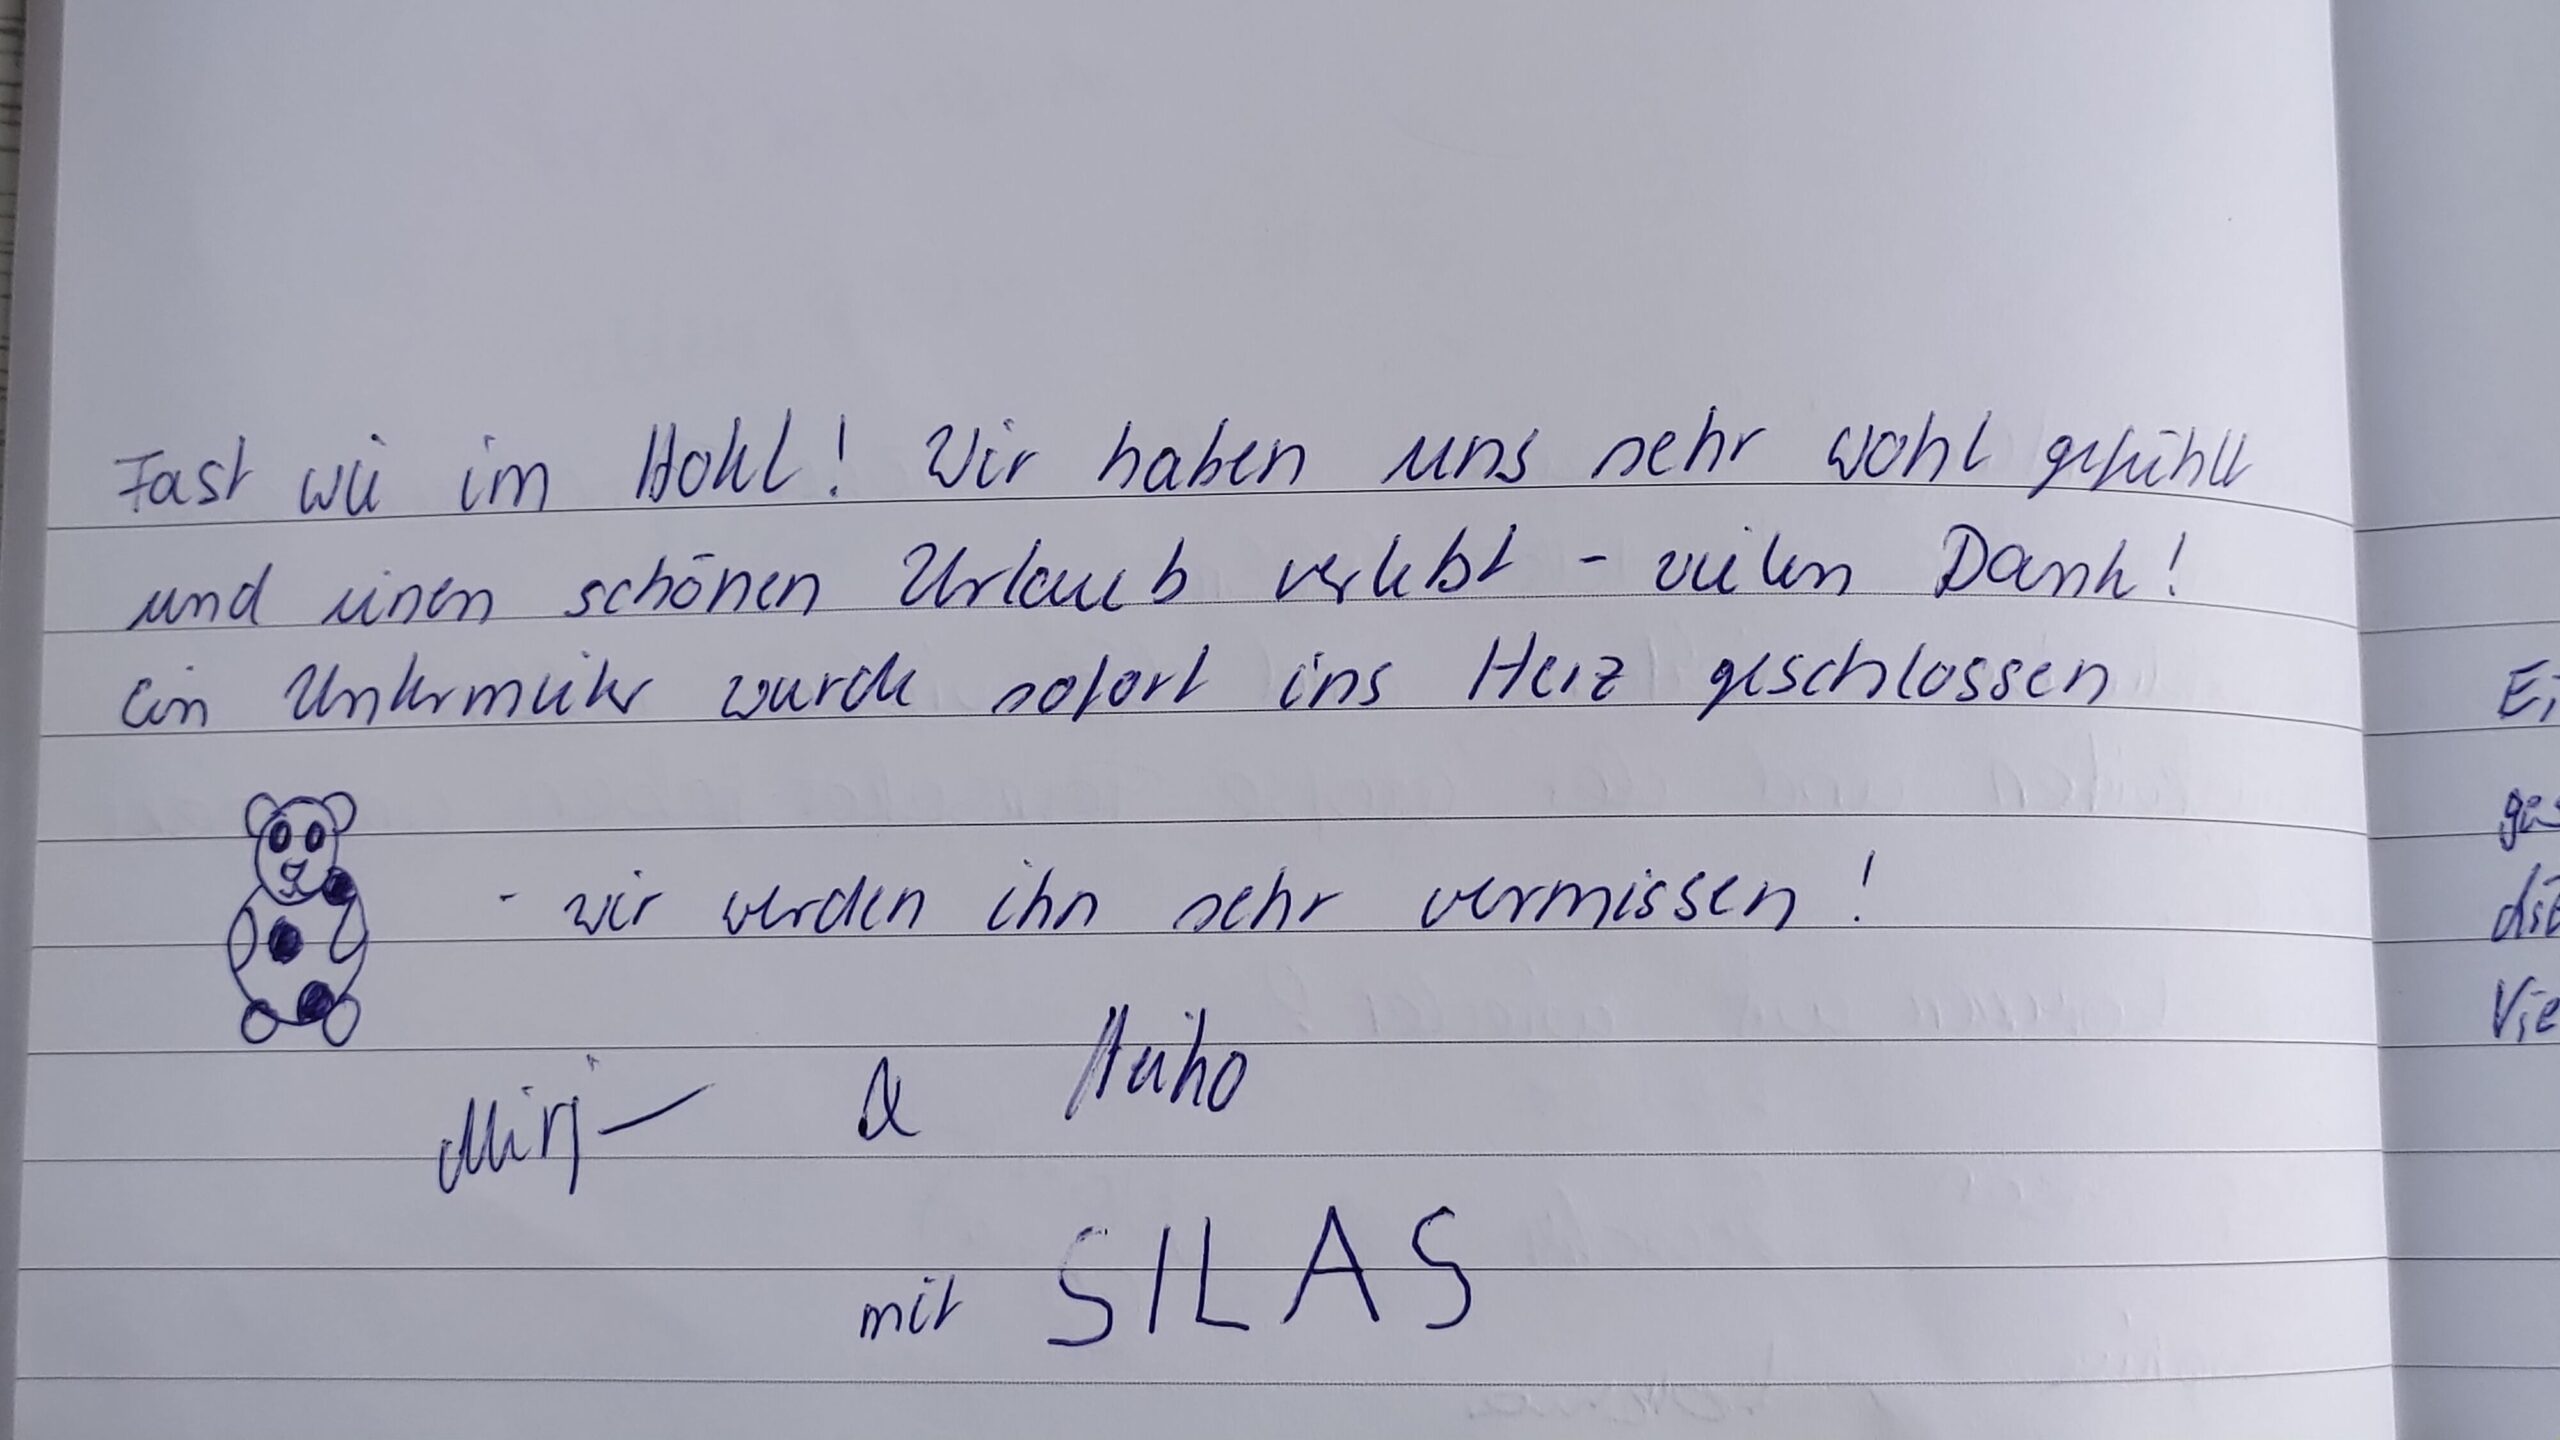 Fast wie im Hotel! Wir haben uns sehr wohl gefühlt
und einen schönen Urlaub verlebt - vielen Dank!
Ein Untermieter wurde sofort ins Herz geschlossen
- wir werden ihn sehr vermissen!
& Heiko
mit SILAS
Ei
die
Vie